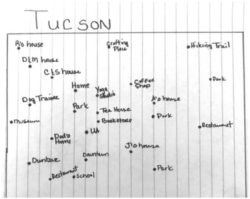 TUCSON
P's house
Crafting Place
Hiking Trail
DLM house
CJ's house
Park
Home
Yoga Studio
Coffee Shop
Dog Trainer
Park
Tea House
A's house
Museum
Bookstore
Park
Dad's Home
UA
Restaurant
Dunbar
Downtown
J's house
Restaurant
School
Park